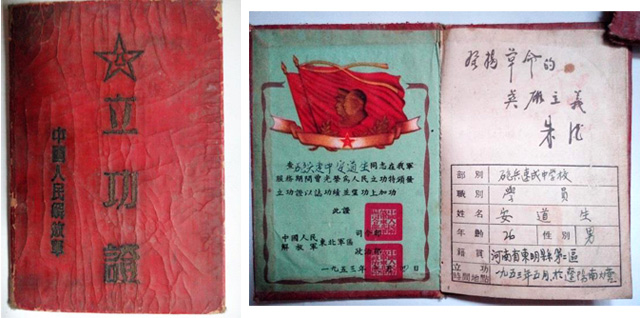 立功證
中國人民解放軍
安道生同志在我軍
服務期間曾光榮為人民立功特頒發
立功證以誌功績並望功上加功
此證
中國人民
解放軍
東北軍區
司令部
政治部
一九五三年
發揚革命的
英雄主義
朱德
部別
砲兵速成中學校
職別
學員
姓名
安道生
年齡
26
性別
男
籍貫
河南省東明縣第二區
立功
時間地點
一九五三年五月於